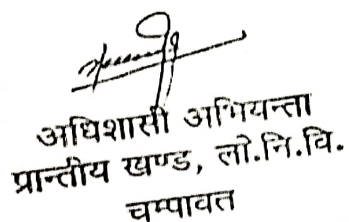 अधिशासी अभियन्ता
प्रान्तीय खण्ड, लो.नि.वि.
चम्पावत